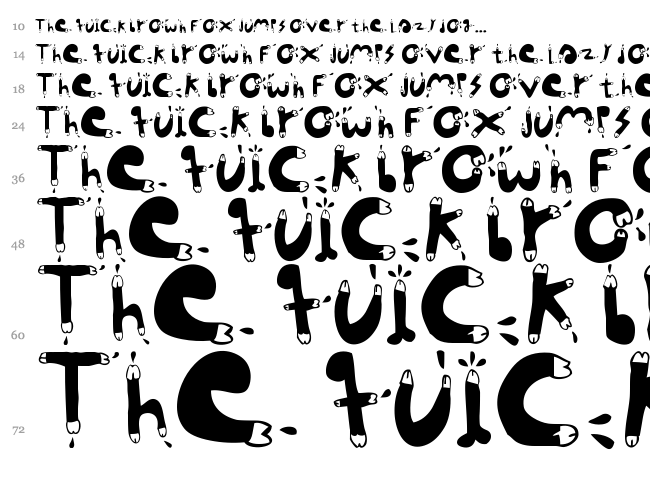 10 The quick brown Fox jumps over the lazy dog...
14 The quick brown Fox jumps over the lazy do
18 The quick brown Fox jumps over the
24 The quick brown Fox jumps o
36 The quick brown Fo
48 The quick bro
60 The quick b
72 The quick